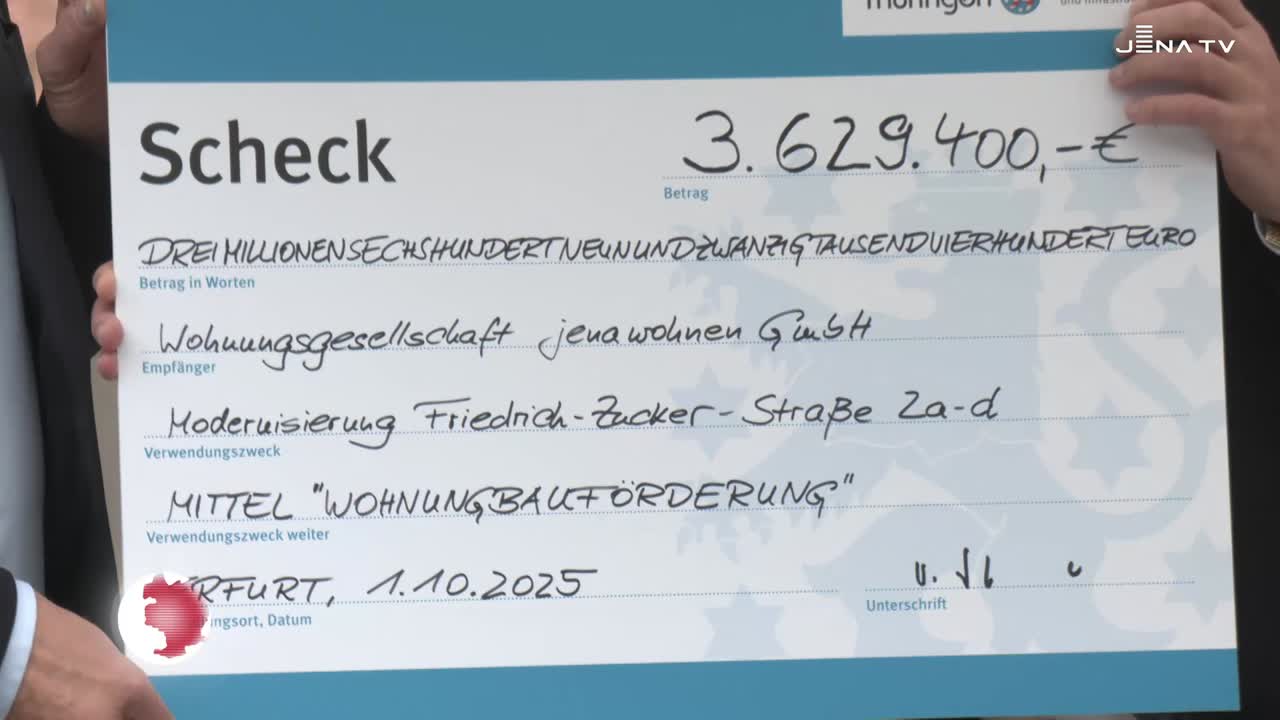 Thüringen
JENA TV
Scheck
3.629.400,-€
Betrag
DREIMILLIONENSECHSHUNDERTNEUNUNDZWANZIGTAUSENDVIERHUNDERTEURO
Betrag in Worten
Wohnungsgesellschaft jenawohnen GmbH
Empfänger
Modernisierung Friedrich-Zucker-Straße 2a-d
Verwendungszweck
MITTEL "WOHNUNGBAUFÖRDERUNG"
Verwendungszweck weiter
RFURT, 1.10.2025
ingsort, Datum
Unterschrift